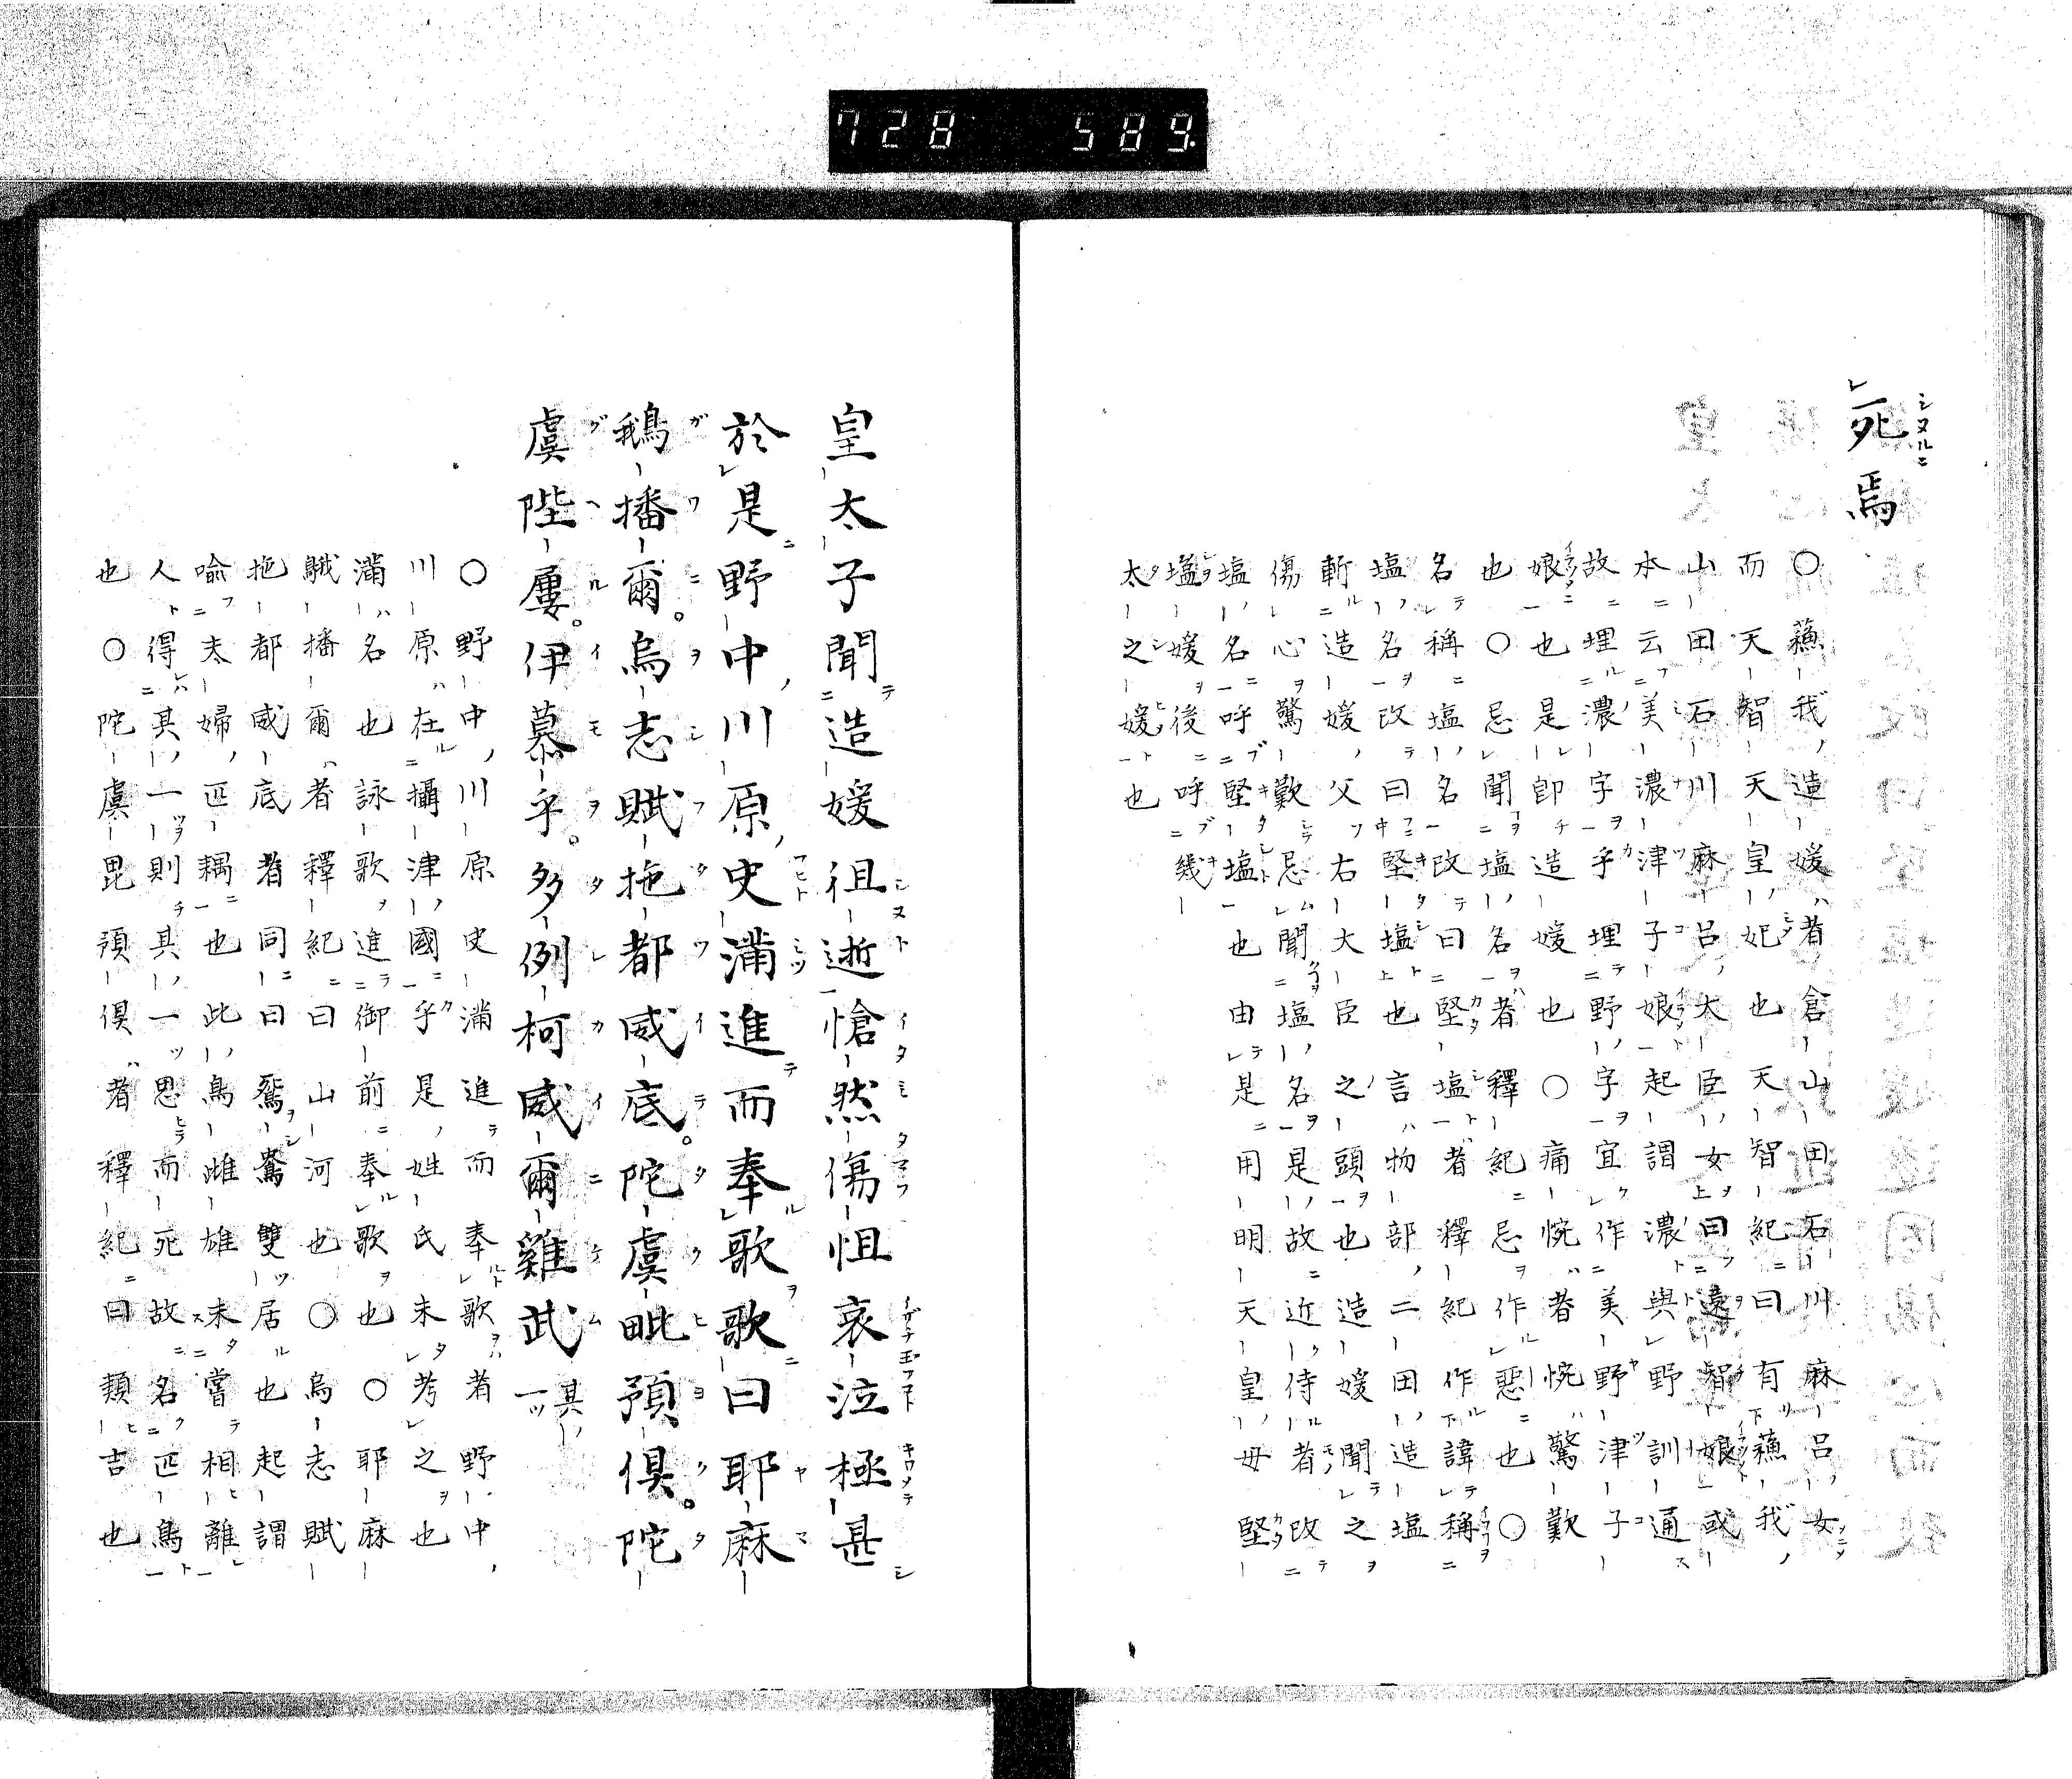 728 589
死焉
〇蘓我造媛者倉山田石川麻呂女
而天智天皇妃也天智紀曰有蘓我
山田石川麻呂大臣女曰遠智娘或
本云美濃津子娘起謂濃與野訓通
故埋濃字乎埋野字宜作美野津子
娘也是即造媛也〇痛惋者惋驚歎
也〇忌聞塩名者釋紀忌作惡也〇
名稱塩名改曰堅塩者釋紀作諱稱
塩名改曰堅塩也言物部二田造塩
斬造媛父右大臣之頭也造媛聞之
傷心驚歎忌聞塩名是故近侍者改
塩名呼堅塩也由是用明天皇母堅
塩媛後呼幾
太之媛也
皇太子聞造媛徂逝愴然傷怛哀泣極甚
於是野中川原史滿進而奉歌歌曰耶麻
鵝播爾烏志賦拖都威底陀虞毗預俱陀
虞陛屢伊慕乎多例柯威爾雞武 其一
〇野中川原史滿進而奉歌者野中
川原在攝津國乎是姓氏未考之也
滿名也詠歌進御前奉歌也〇耶麻
鵝播爾者釋紀曰山河也〇烏志賦
拖都威底者同曰鴛鴦雙居也起謂
喩夫婦匹耦也此鳥雌雄未嘗相離
人得其一則其一思而死故名匹鳥
也〇陀虞毘預俱者釋紀曰類吉也